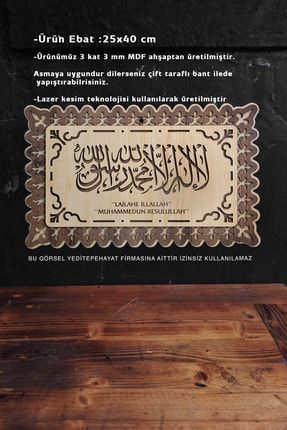 -Ürün Ebat :25x40 cm
-Ürünümüz 3 kat 3 mm MDF ahşaptan üretilmiştir.
Asmaya uygundur dilerseniz çift taraflı bant ilede
yapıştırabilirisiniz.
-Lazer kesim teknolojisi kullanılarak üretilmiştir
لا إله إلا الله محمد رسول الله
"LAİLAHE İLLALLAH"
"MUHAMMEDUN RESULULLAH"
BU GÖRSEL YEDİTEPEHAYAT FİRMASINA AİTTİR İZİNSİZ KULLANILAMAZ